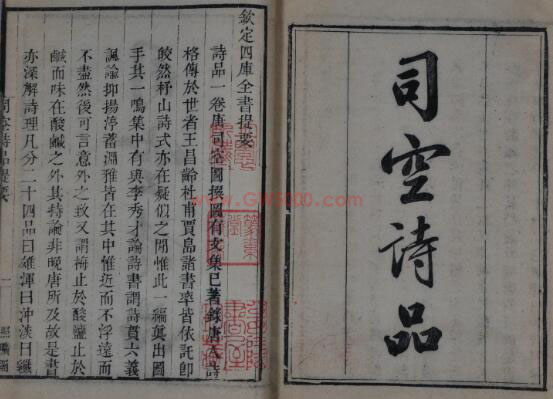 司空詩品
欽定四庫全書提要
詩品一卷唐司空圖撰圖有文集已著錄唐人詩
格傳於世者王昌齡杜甫賈島諸書率皆依託即
皎然杼山詩式亦在疑似之間惟此一編真出圖
手其一鳴集中有與李秀才論詩書謂詩貫六義
諷諭抑揚渟蓄淵雅皆在其中惟近而不浮遠而
不盡然後可言意外之致又謂梅止於酸鹽止於
鹹而味在酸鹹之外其持論非晚唐所及故是書
亦深解詩理凡分二十四品曰雄渾曰沖淡曰纖
司空詩品提要
一
www.GW1000.com